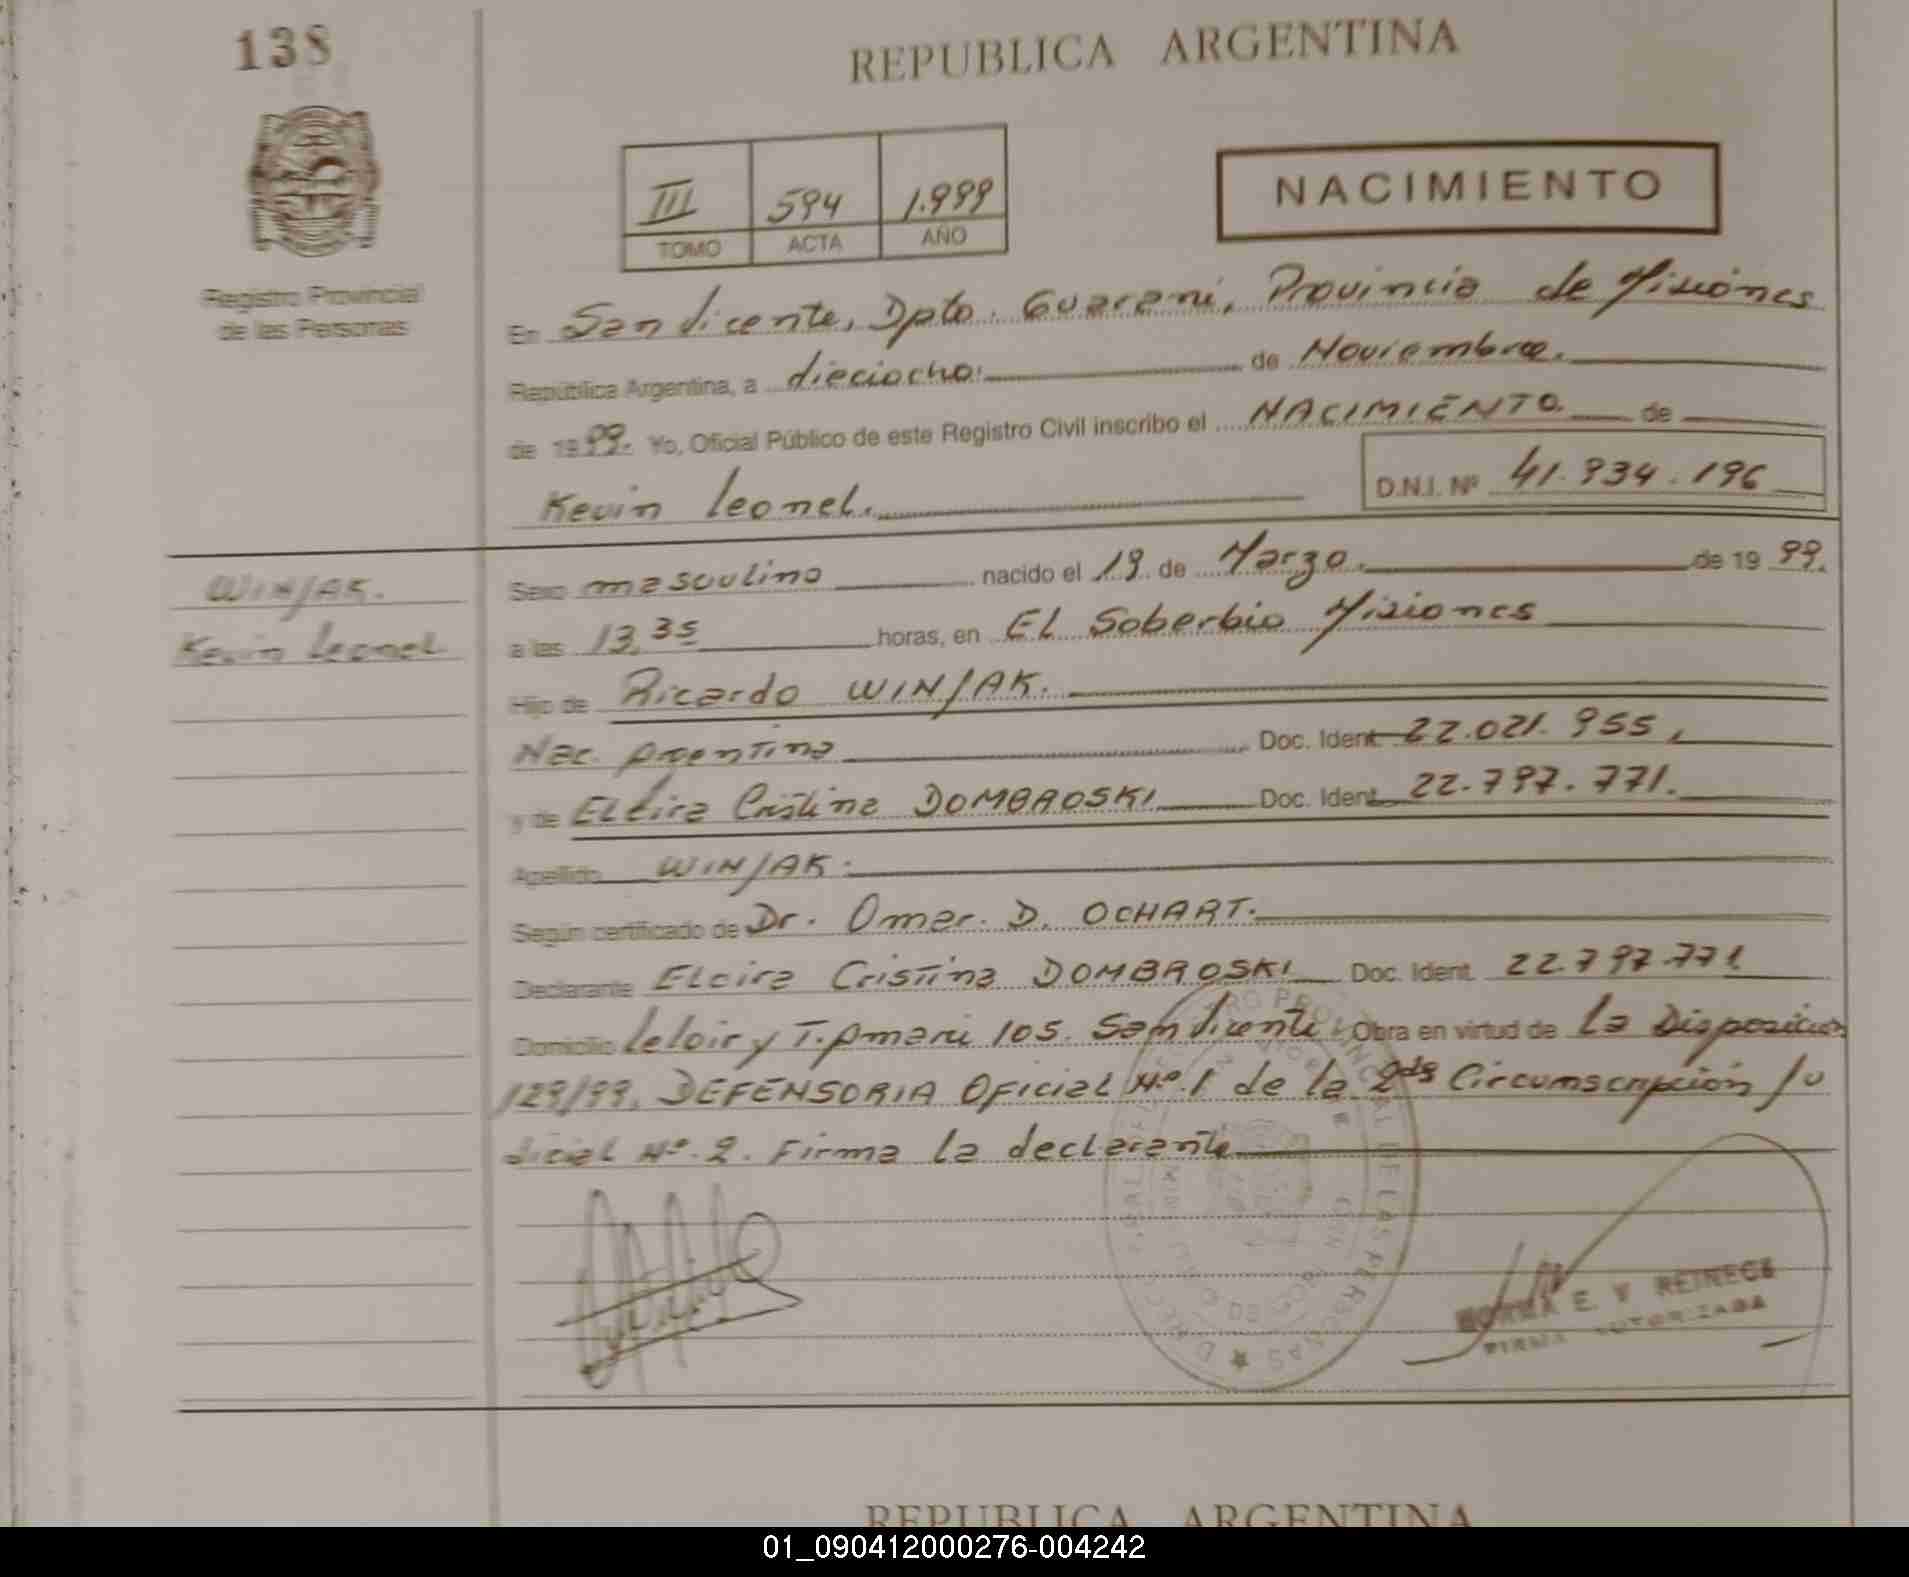 138
REPUBLICA ARGENTINA
III 594 1.999
TOMO ACTA AÑO
NACIMIENTO
Registro Provincial
de las Personas
En San Vicente, Dpto. Guarani, Provincia de Misiones
República Argentina, a dieciocho de Noviembre.
de 1999. Yo, Oficial Público de este Registro Civil inscribo el NACIMIENTO. de
Kevin Leonel. D.N.I. Nº 41.934.196
WINJAK.
Kevin Leonel
Sexo masculino nacido el 19 de Marzo. de 1999.
a las 13,35 horas, en EL Soberbio Misiones
Hijo de Ricardo WINJAK.
Nac. Argentina Doc. Ident. 22.021.955,
y de Elcira Cristina DOMBROSKI Doc. Ident. 22.797.771.
Apellido WINJAK.
Según certificado de Dr. Omar. D. OCHART.
Declarante Elcira Cristina DOMBROSKI Doc. Ident. 22.797.771
Domicilio Leloir y T. Amaru 105. San Vicente. Obra en virtud de La Disposicion
129/99. DEFENSORIA Oficial Nº.1 de la 2da Circumscripción Ju
dicial Nº.2. Firma la declarante
E. V REINECK
FIRMA AUTORIZADA
REPUBLICA ARGENTINA
01_090412000276-004242